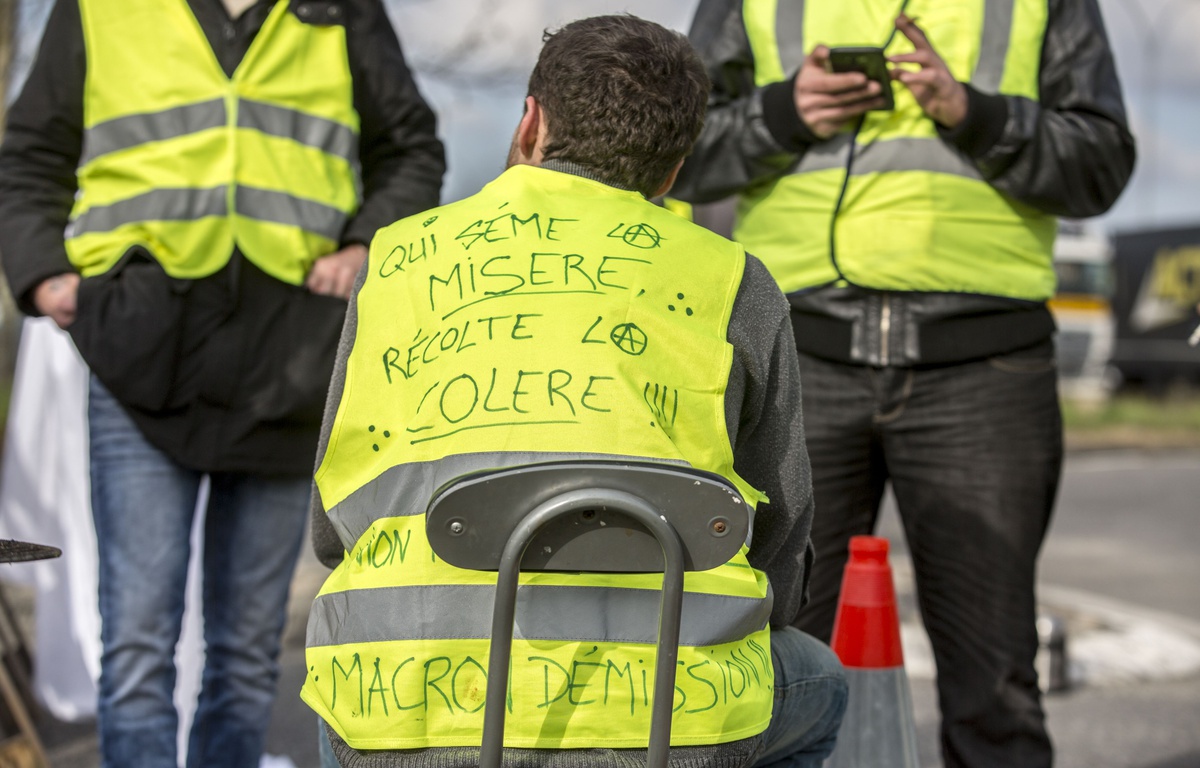 QUI SÉME LA
MISERE,
RÉCOLTE LA
COLERE !!!!
MACRON DÉMISSION !!!